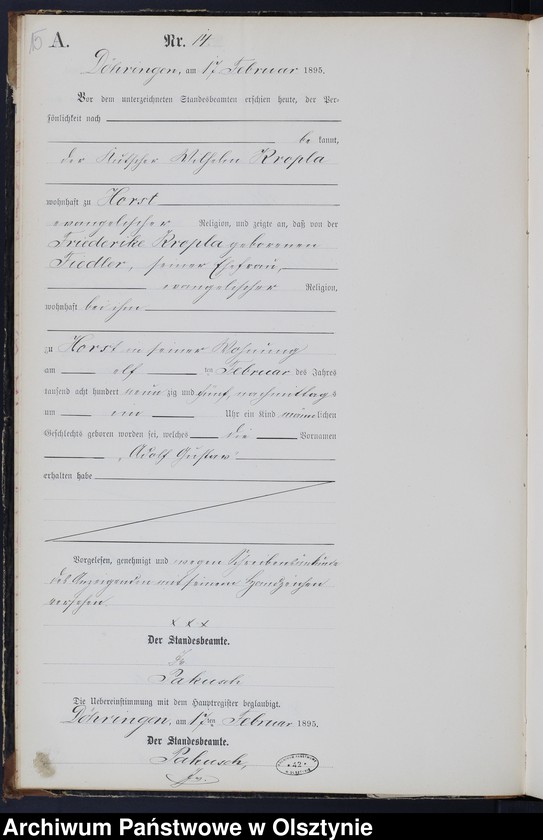 15 A. Nr. 14
Döhringen, am 17 Februar 1895.
Vor dem unterzeichneten Standesbeamten erschien heute, der Per-
sönlichkeit nach
be kannt,
der Kutscher Wilhelm Kropla
wohnhaft zu Horst
evangelischer Religion, und zeigte an, daß von der
Friederike Kropla geborenen
Fiedler, seiner Ehefrau,
evangelischer Religion,
wohnhaft bei ihm
zu Horst in seiner Wohnung
am elf ten Februar des Jahres
tausend acht hundert neun zig und fünf, nachmittags
um ein Uhr ein Kind männlichen
Geschlechts geboren worden sei, welches die Vornamen
Adolf Gustav
erhalten habe
Vorgelesen, genehmigt und wegen Schreibensunkunde
des Anzeigenden mit seinem Handzeichen
versehen.
x x x
Der Standesbeamte.
Pakusch
Die Uebereinstimmung mit dem Hauptregister beglaubigt.
Döhringen, am 17ten Februar 1895.
Der Standesbeamte.
Pakusch,
42
Archiwum Państwowe w Olsztynie